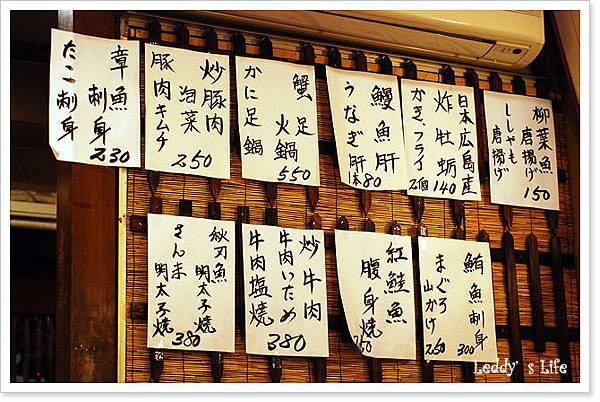 章魚
刺身
たこ刺身
230
炒豚肉
泡菜
豚肉キムチ
250
蟹足
火鍋
かに足鍋
550
鰻魚肝
うなぎ肝
1本80
日本広島産
炸牡蛎
かき、フライ
2個140
柳葉魚
唐揚げ
ししゃも
唐揚げ
150
秋刀魚
明太子焼
さんま
明太子焼
380
炒牛肉
牛肉いため
牛肉塩焼
380
紅鮭魚
腹身焼
鮪魚刺身
300
まぐろ
山かけ
250
Leddy's Life